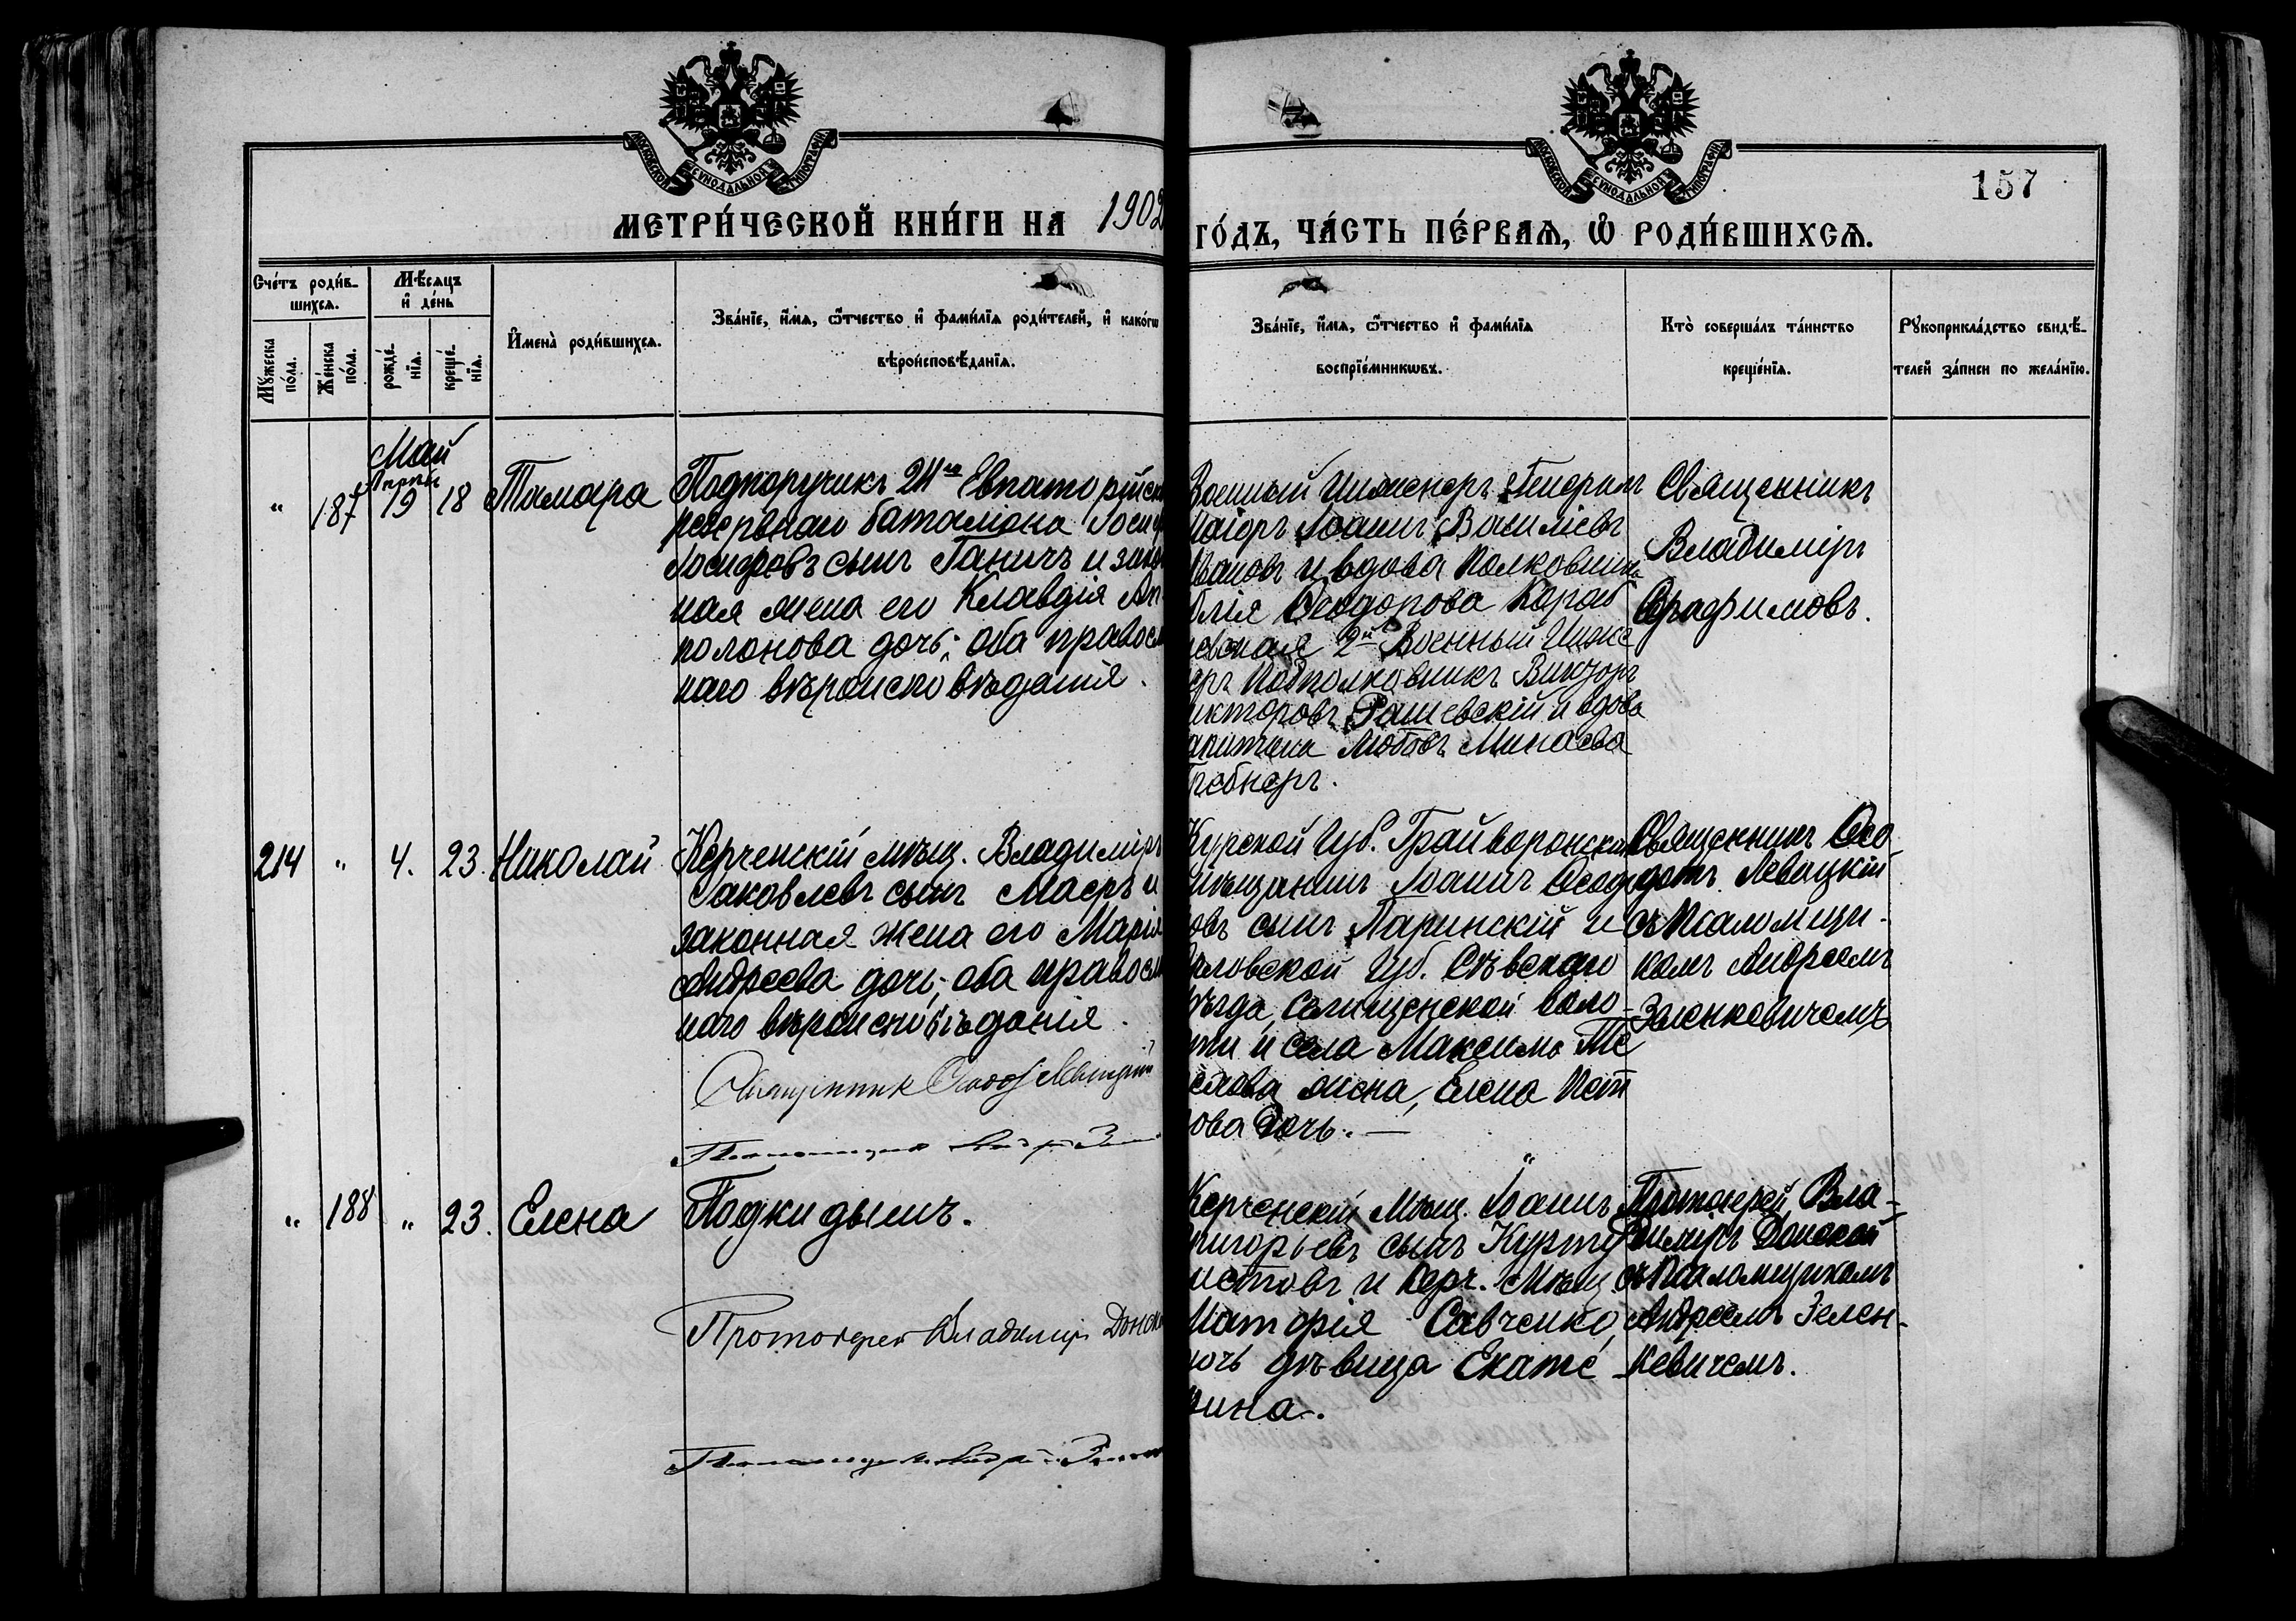 МОСКОВСКОЙ СѴНОДАЛЬНОЙ ТИПОГРАФІИ
МОСКОВСКОЙ СѴНОДАЛЬНОЙ ТИПОГРАФІИ
157
МЕТРИ́ЧЕСКОЙ КНИ́ГИ НА 1902
ГО́ДЪ, ЧА́СТЬ ПЕ́РВАѦ, Ѡ҆ РОДИ́ВШИХСѦ.
Сче́тъ роди́в-
шихсѧ.
Мꙋ́жеска
по́ла.
Же́нска
по́ла.
Мѣ́сѧцъ
и҆ де́нь
рожде́-
нїѧ.
креще́-
нїѧ.
И҆мена̀ роди́вшихсѧ.
Зва́нїе, и҆́мѧ, ѻ҆́тчество и҆ фами́лїѧ роди́телей, и҆ како́гѡ
вѣроисповѣ́данїѧ.
Зва́нїе, и҆́мѧ, ѻ҆́тчество и҆ фами́лїѧ
воспрїе́мникѡвъ.
Кто̀ соверша́лъ та́инство
креще́нїѧ.
Рꙋкоприкла́дство свидѣ́-
телей за́писи по жела́нїю.
Май
Апрѣл
" 187 19 18 Тамара
Подпоручикъ 24го Евпаторійск
резервнаго баталіона Іосиф
Іосифовъ сынъ Ганичъ и закон
ная жена его Клавдія Ап-
полонова дочь; оба правосл
наго вѣроисповѣданія.
Военный Инженеръ Генералъ
Маіоръ Іоаннъ Василіевъ
Ивановъ и вдова Полковника
Юлія Ѳеодорова Караб
2й Военный Инже
еръ Подполковникъ Викторъ
икторовъ Рашевскій и вдова
апитана Любовь Минаева
Гребнеръ.
Священникъ
Владиміръ
Серафимовъ.
214 " 4. 23. Николай
Керченскій мѣщ. Владиміръ
Іаковлевъ сынъ Маеръ и
законная жена его Марія
Андреева дочь; оба правосл
наго вѣроисповѣданія.
Священник Левицкий
Курской Губ. Грайворонскій
мѣщанинъ Іоаннъ Ѳеодо
овъ сынъ Паринскій и
Орловской Губ. Сѣвскаго
уѣзда, Селищенской воло-
сти и села Максима Те
слова жена, Елена Пет
рова дочь.—
Священникъ Ѳео
дотъ Левицкій
съ Псаломщи-
комъ Андреемъ
Зеленкевичемъ
" 188 " 23. Елена
Подкидышъ.
Протоиерей Владимир Донско
Керченскій Мѣщ. Іоаннъ
Григорьевъ сынъ Курту
истовъ и Керч. Мѣщ.
Савченко,
дочь дѣвица Екате
рина.
Протоіерей Вла-
диміръ Донской
съ Псаломщикомъ
Андреемъ Зелен-
кевичемъ.